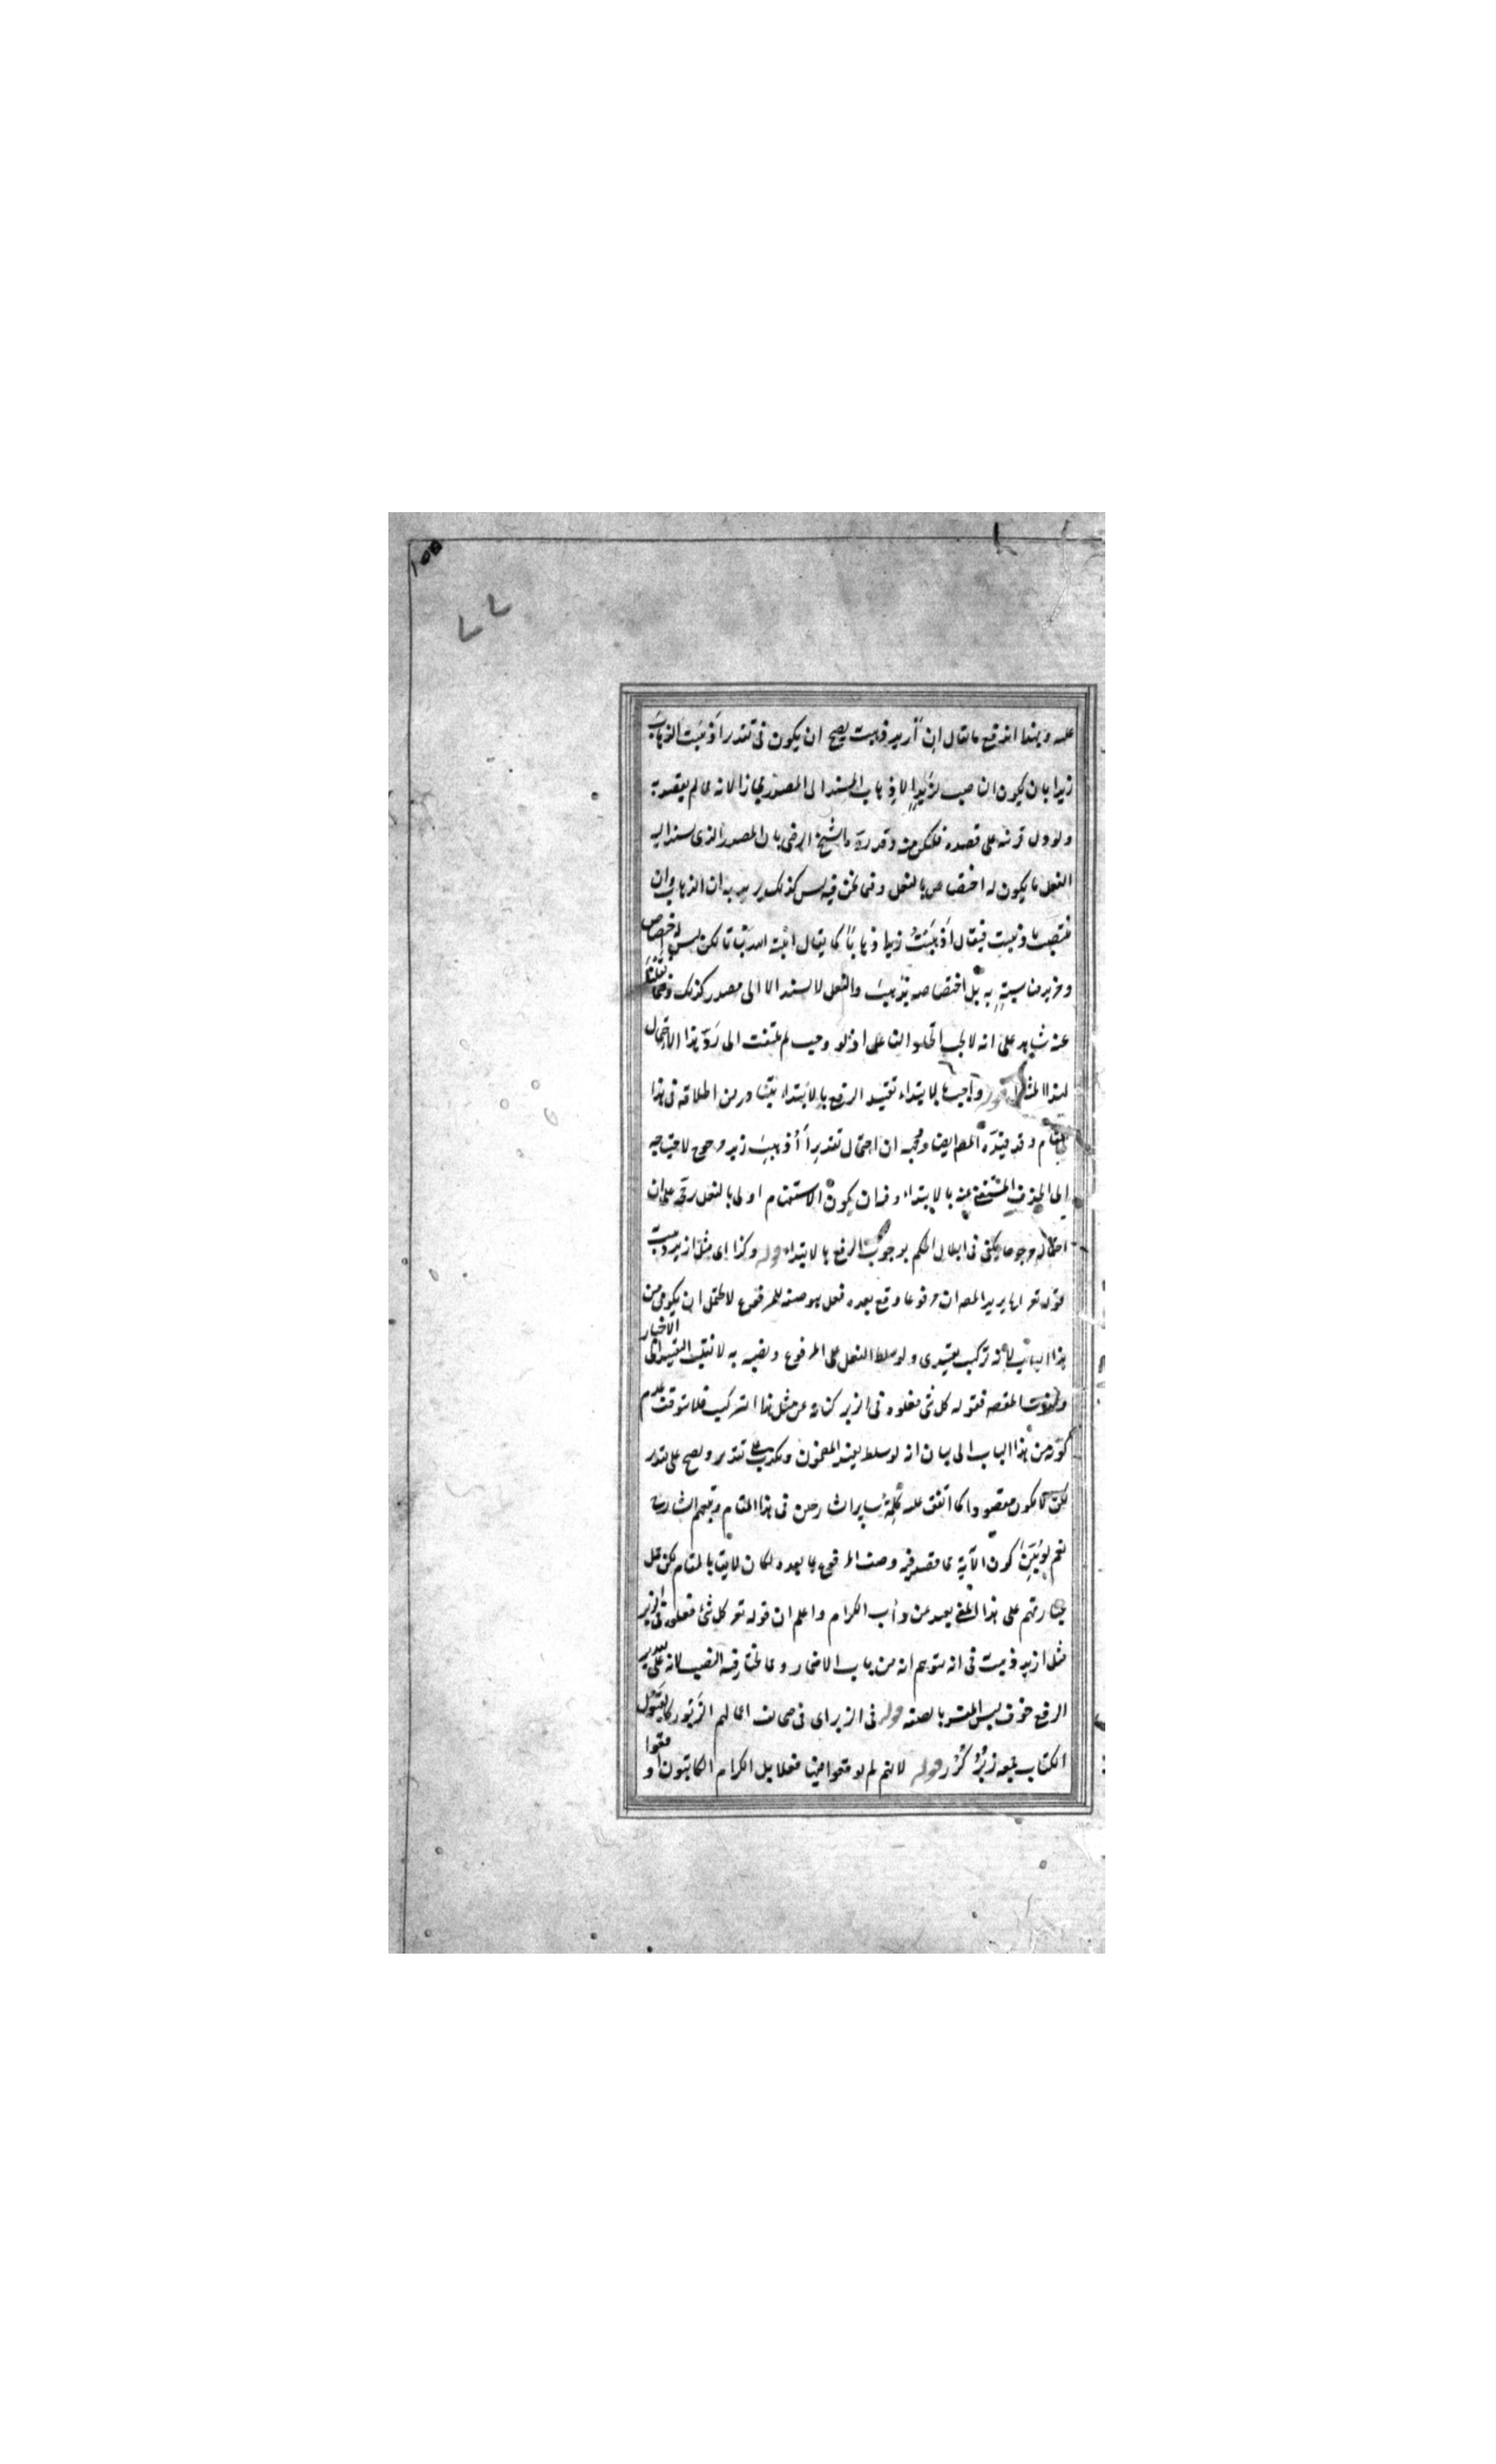 ١٥٥
٧٧
عليه وبهذا اندفع ما يقال ان أزيد ذهب يصح ان يكون في تقدير أذهبت الذهاب
زيدا بان يكون الناصب لزيد الاذهاب المسند الى المصدر مجازا لانه مما لم يقصد به
ولو دل قرينة على قصده فليكن منه وقد رده الشيخ الرضي بان المصدر الذي يسند اليه
الفعل ما يكون له اختصاص بالفعل وفيما نحن فيه ليس كذلك يريد به ان الذهاب وان
ينتصب باذهبت فيقال أذهبت زيدا ذهابا كما يقال انبته الله نباتا لكن ليس له اختصاص
ومزيد مناسبة به بل اختصاصه بذهب والفعل لا يسند الا الى مصدر كذلك وفيما نقلنا
عنه شاهد على انه لا يجب اتحاد الفاعل اذ لو وجب لم يلتفت الى رد هذا الاحتمال
لهذا المثال قوله واجبا بالابتداء تقييد الرفع بالابتداء يتبادر من اطلاقه في هذا
المقام وقد قيده المصـ ايضا وفيه ان احتمال تقدير أأذهب زيد مرجوح لاحتياجه
الى الحذف المستغنى عنه بالابتداء وفيه ان يكون الاستفهام اولى بالفعل رجحه على ان
احتماله مرجوحا يكفي في ابطال الحكم بوجوب الرفع بالابتداء قوله وكذا اي مثل ازيد ذهب به
قوله تعـ انما يريد المصـ ان مرفوعا وقع بعده فعل هو صفة للمرفوع لا يحتمل ان يكون من
هذا الباب لانه تركيب تقييدي ولو سلط الفعل على المرفوع ونصبه به لانقلب التقييد الى الاخبار
ولفوت المقصـ فقوله كل شئ فعلوه في الزبر كناية عن مثل هذا التركيب فلا يتوقف عدم
كونه من هذا الباب الى بيان انه لو سلط يفسد المضمون ويكذب على تقدير ويصح على تقدير
لكن لا يكون مقصودا كما اتفق عليه كلمة سائر الشارحين في هذا المقام وتبعهم الشارح
نعم لو بين كون الآية مما قصد فيه وصف المرفوع بما بعده لكان لايقا بالمقام لكن حمل
عبارتهم على هذا المعنى بعيد عن دأب الكرام واعلم ان قوله تعـ كل شئ فعلوه في الزبر
مثل ازيد ذهب به في انه يتوهم انه من باب الاضمار ومما يختار فيه النصب لانه على تقدير
الرفع خوف لبس المفسر بالصفة قوله في الزبر اي في صحائف اعمالهم الزبور كالرسول
الكتاب جمعه زبر كرسل قوله لانهم لم يوقعوا فيها فعلا بل الكرام الكاتبون اوقعوا